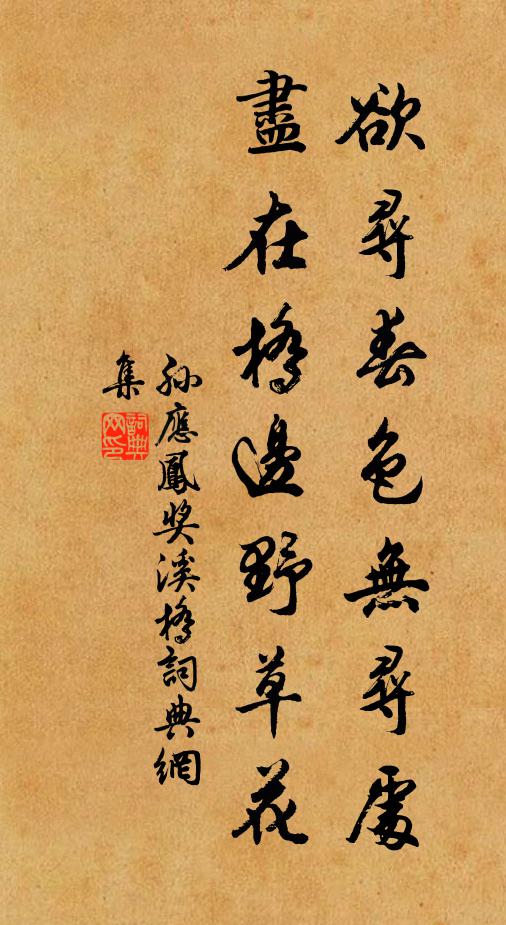 欲尋春色無尋處
盡在橋邊野草花
孫應鳳奖溪橋詞典網
集
詞典网印